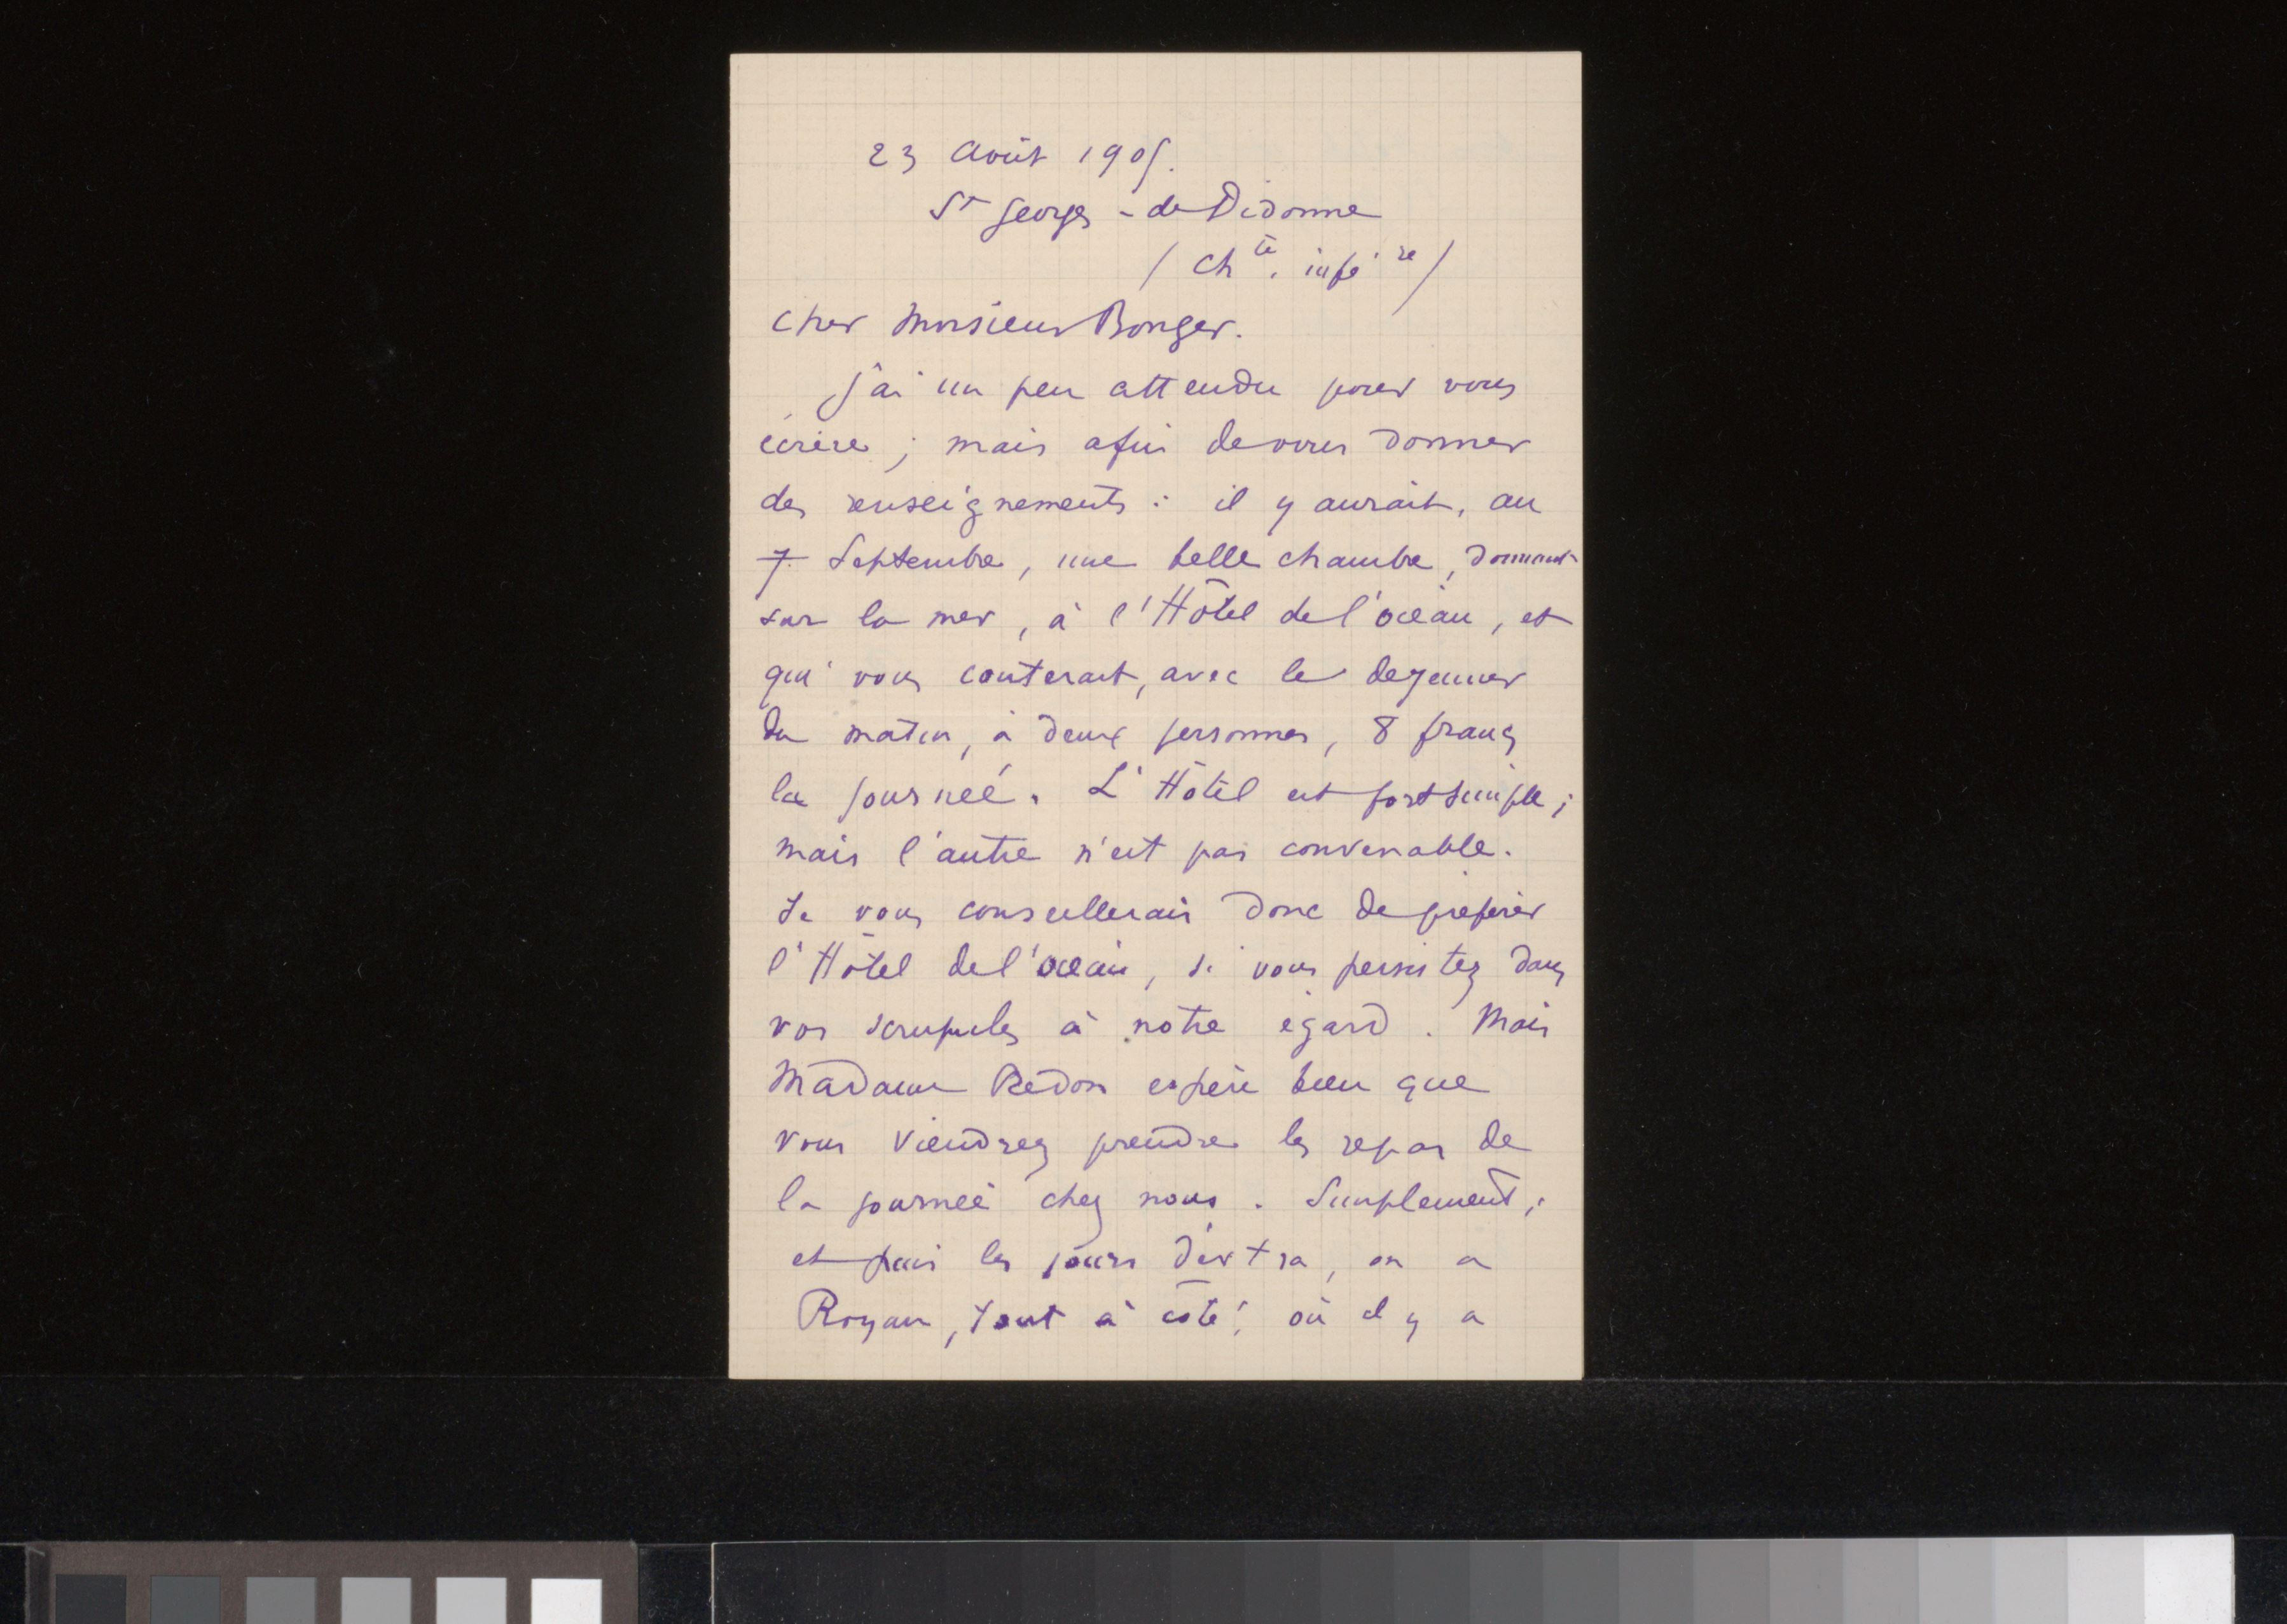 23 Août 1905.
St Georges-de Didonne
(Chte. inférre)
Cher Monsieur Bonger.
J'ai un peu attendu pour vous
écrire ; mais afin de vous donner
des renseignements : il y aurait, au
7 Septembre, une belle chambre, donnant
sur la mer, à l'Hôtel de l'océan, et
qui vous couterait, avec le dejeuner
du matin, à deux personnes, 8 francs
la journeé. L'Hôtel est fort simple ;
mais l'autre n'est pas convenable.
Je vous conseillerais donc de préférer
l'Hôtel de l'océan, si vous persistez dans
vos scrupules à notre égard. Mais
Madame Redon espère bien que
vous viendrez prendre les repas de
la journeé chez nous. Simplement ;
et puis les jours d'extra, on a
Royan, tout à côté ! où il y a